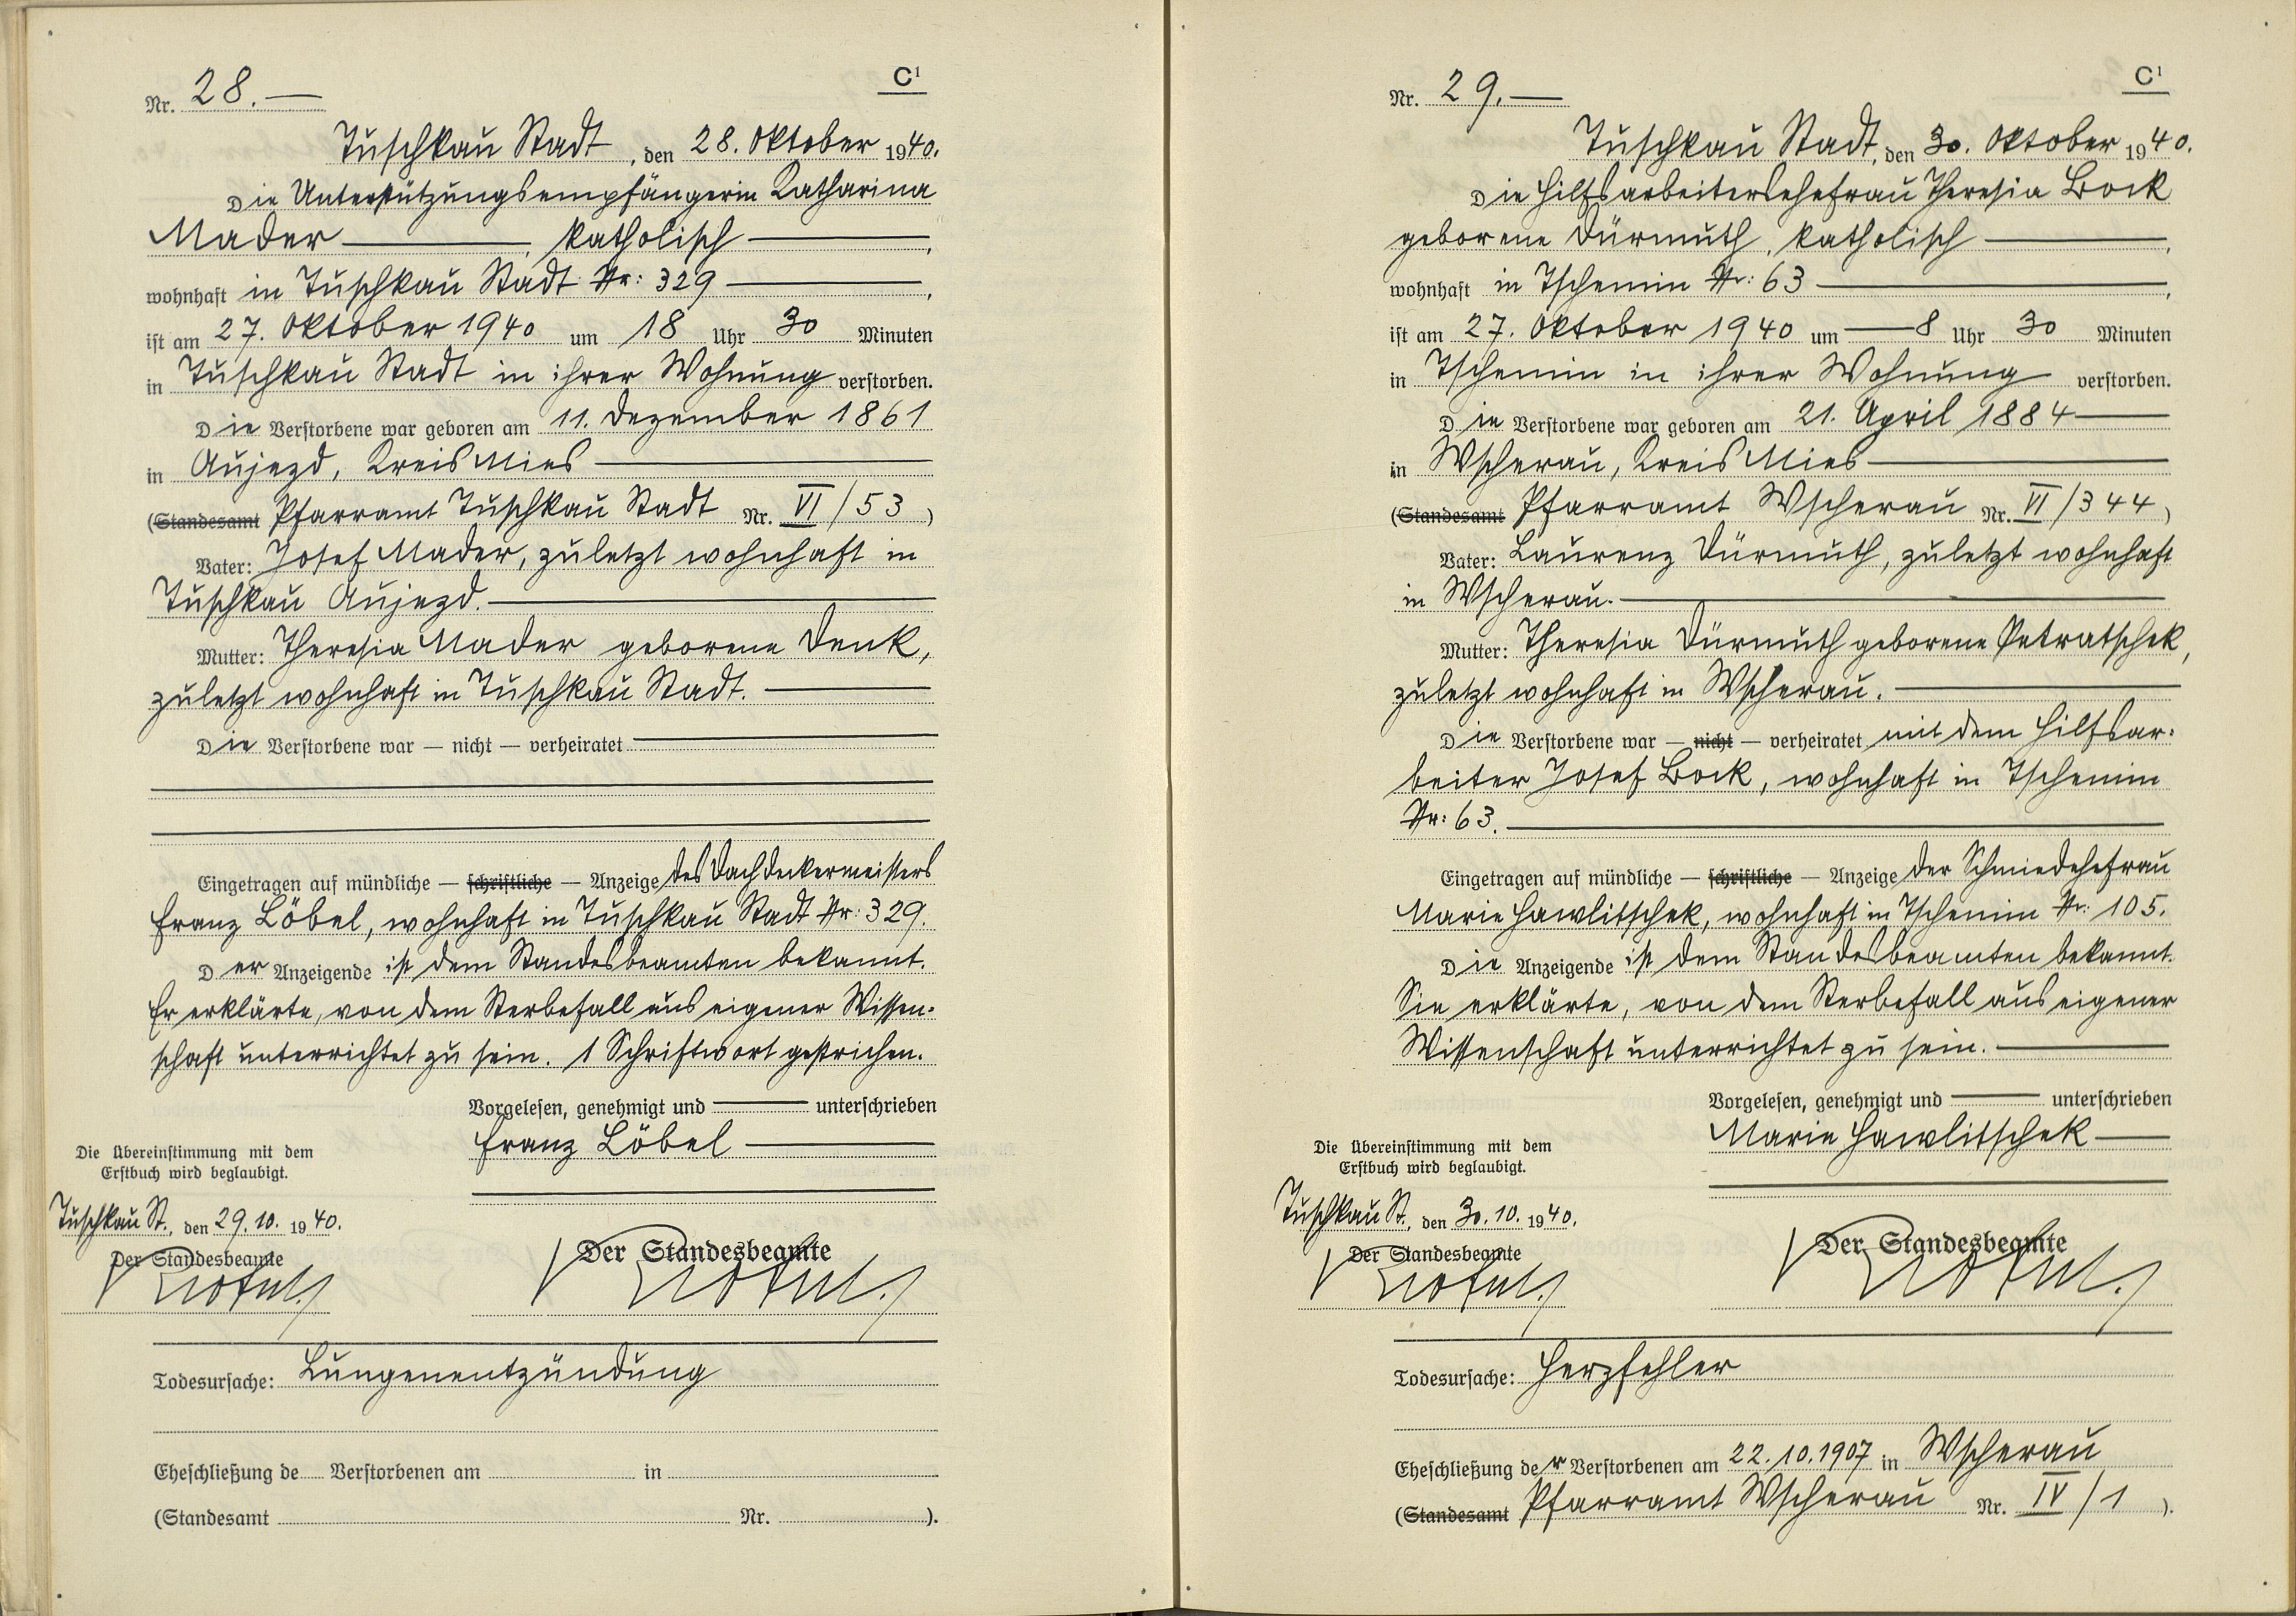 C¹
Nr. 28.
Tuschkau Stadt, den 28. Oktober 1940.
Die Unterstützungsempfängerin Katharina
Mader, katholisch,
wohnhaft in Tuschkau Stadt Nr: 329,
ist am 27. Oktober 1940 um 18 Uhr 30 Minuten
in Tuschkau Stadt in ihrer Wohnung verstorben.
Die Verstorbene war geboren am 11. Dezember 1861
in Aujezd, Kreis Mies
(Standesamt Pfarramt Tuschkau Stadt Nr. VI/53)
Vater: Josef Mader, zuletzt wohnhaft in
Tuschkau Aujezd.
Mutter: Theresia Mader geborene Denk,
zuletzt wohnhaft in Tuschkau Stadt.
Die Verstorbene war — nicht — verheiratet
Eingetragen auf mündliche — schriftliche — Anzeige des Dachdeckermeisters
Franz Löbel, wohnhaft in Tuschkau Stadt Nr: 329.
Der Anzeigende ist dem Standesbeamten bekannt.
Er erklärte, von dem Sterbefall aus eigener Wissen-
schaft unterrichtet zu sein. 1 Schriftwort gestrichen.
Vorgelesen, genehmigt und unterschrieben
Franz Löbel
Die Übereinstimmung mit dem
Erstbuch wird beglaubigt.
Tuschkau St., den 29.10. 1940.
Der Standesbeamte
Der Standesbeamte
Todesursache: Lungenentzündung
Eheschließung de Verstorbenen am in
(Standesamt Nr. ).
C¹
Nr. 29.
Tuschkau Stadt, den 30. Oktober 1940.
Die Hilfsarbeitersehefrau Theresia Bock
geborene Dürmuth, katholisch,
wohnhaft in Tschemin Nr: 63,
ist am 27. Oktober 1940 um 8 Uhr 30 Minuten
in Tschemin in ihrer Wohnung verstorben.
Die Verstorbene war geboren am 21. April 1884
in Wscherau, Kreis Mies
(Standesamt Pfarramt Wscherau Nr. VI/344)
Vater: Laurenz Dürmuth, zuletzt wohnhaft
in Wscherau.
Mutter: Theresia Dürmuth geborene Petratschek,
zuletzt wohnhaft in Wscherau.
Die Verstorbene war — nicht — verheiratet mit dem Hilfsar-
beiter Josef Bock, wohnhaft in Tschemin
Nr: 63.
Eingetragen auf mündliche — schriftliche — Anzeige der Schmiedehefrau
Marie Hawlitschek, wohnhaft in Tschemin Nr: 105.
Die Anzeigende ist dem Standesbeamten bekannt.
Sie erklärte, von dem Sterbefall aus eigener
Wissenschaft unterrichtet zu sein.
Vorgelesen, genehmigt und unterschrieben
Marie Hawlitschek
Die Übereinstimmung mit dem
Erstbuch wird beglaubigt.
Tuschkau St., den 30.10. 1940.
Der Standesbeamte
Der Standesbeamte
Todesursache: Herzfehler
Eheschließung der Verstorbenen am 22.10.1907 in Wscherau
(Standesamt Pfarramt Wscherau Nr. IV/1 ).